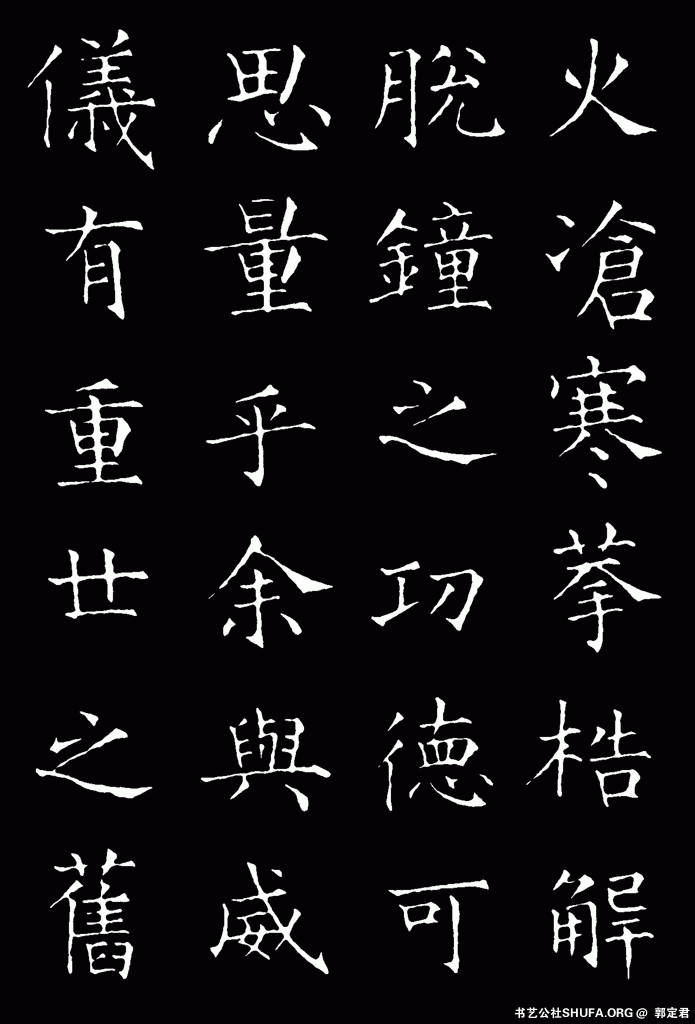 火凔寒拲梏解
脫鐘之功德可
思量乎余與威
儀有重廿之舊
书艺公社SHUFA.ORG @ 郭定君